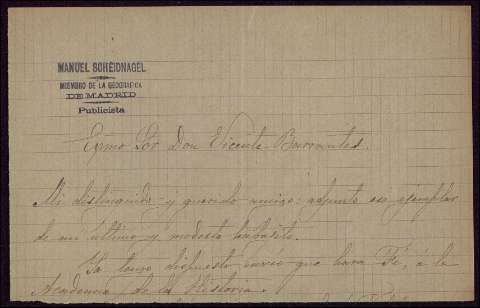 MANUEL SCHEIDNAGEL
MIEMBRO DE LA GEOGRÁFICA
DE MADRID
Publicista
Exmo Sor Don Vicente Barrantes.
Mi distinguido y querido amigo: adjunto ese ejemplar
de mi último y modesto
Ya tengo dispuesto envio que hara Fé, a la
Academia de la Historia.